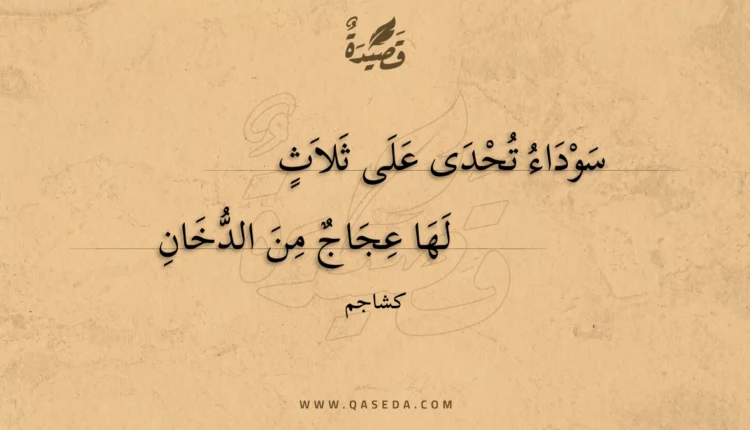 قَصِيْدَةٌ
سَوْدَاءُ تُحْدَى عَلَى ثَلاَثٍ
لَهَا عِجَاجٌ مِنَ الدُّخَانِ
كشاجم
WWW.QASEDA.COM